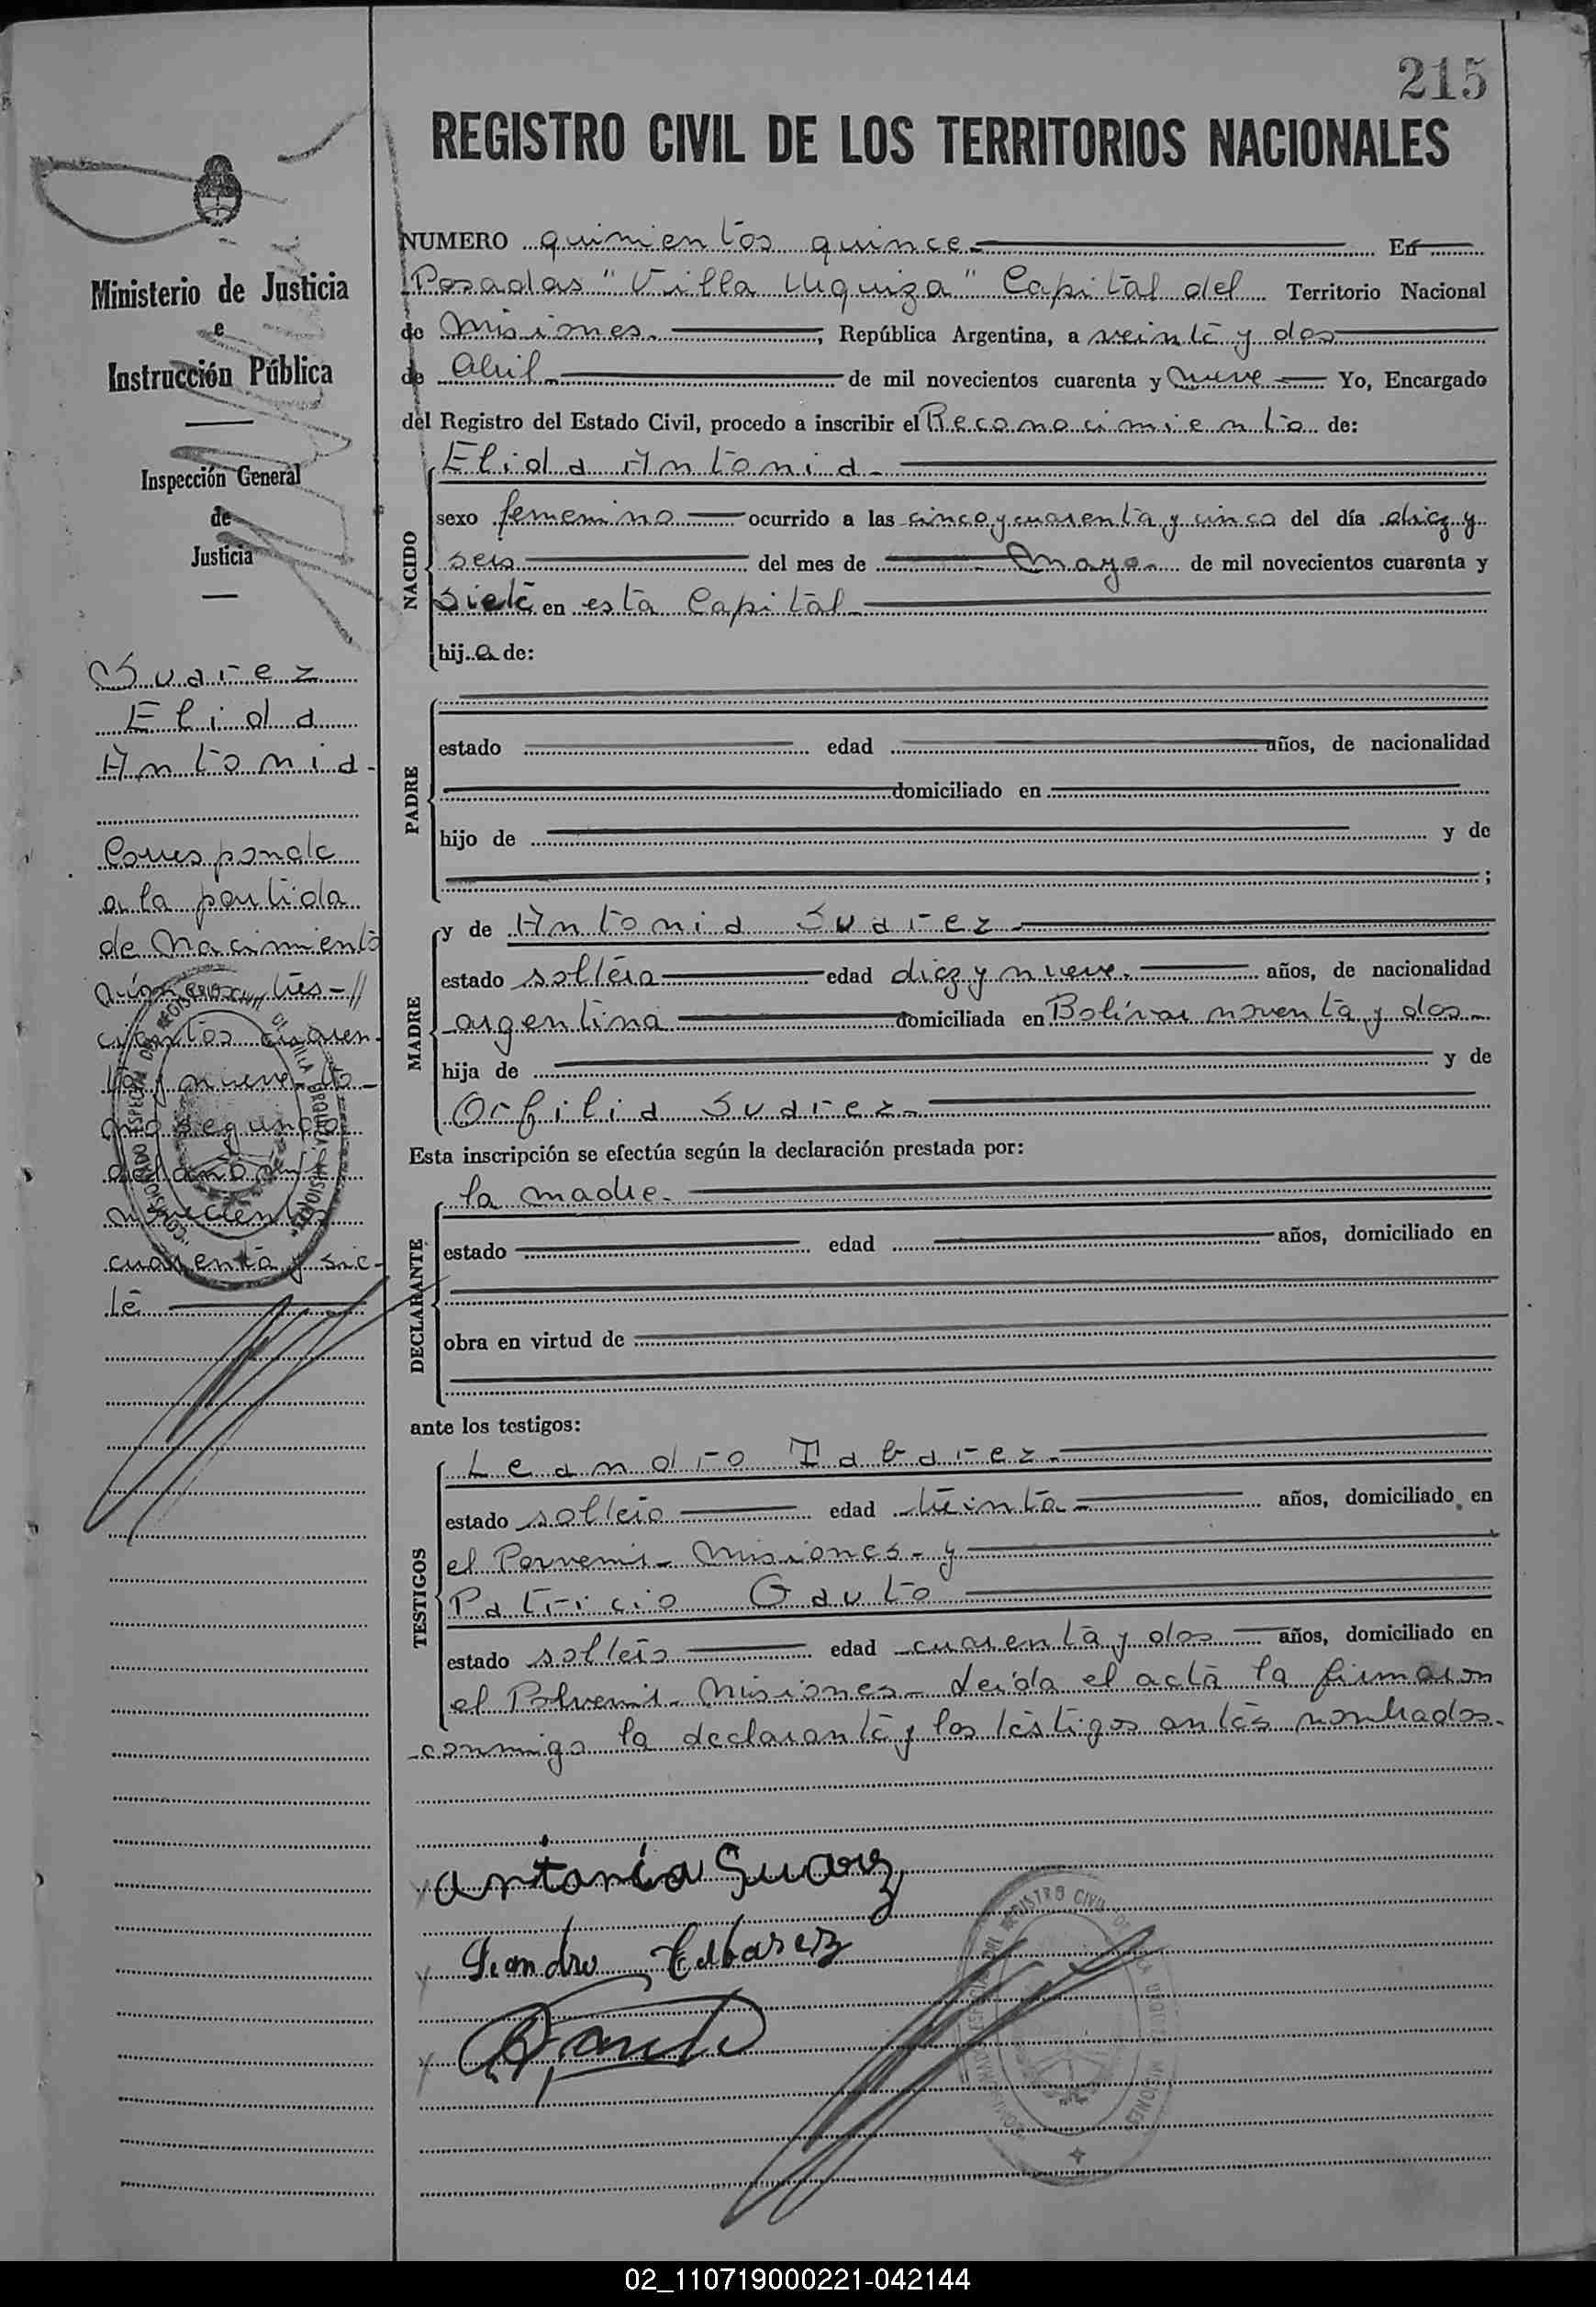 215
REGISTRO CIVIL DE LOS TERRITORIOS NACIONALES
Ministerio de Justicia
e
Instrucción Pública
Inspección General
de
Justicia
Suarez
Elida
Antonia-
Corresponde
a la partida
de Nacimiento
número tres-//
cientos cuaren-
ta y nueve to-
mo segundo
del año mil
novecientos
cuarenta y sie-
te
NUMERO quinientos quince- En
Posadas "Villa Urquiza" Capital del Territorio Nacional
de Misiones.-, República Argentina, a veinte y dos
de Abril- de mil novecientos cuarenta y nueve Yo, Encargado
del Registro del Estado Civil, procedo a inscribir el Reconocimiento de:
NACIDO
Elida Antonia-
sexo femenino ocurrido a las cinco y cuarenta y cinco del día diez y
seis del mes de Mayo- de mil novecientos cuarenta y
siete en esta Capital-
hija de:
PADRE
estado edad años, de nacionalidad
domiciliado en
hijo de y de
;
MADRE
y de Antonia Suarez-
estado soltera edad diez y nueve.- años, de nacionalidad
argentina domiciliada en Bolívar noventa y dos-
hija de y de
Orfilia Suarez-
Esta inscripción se efectúa según la declaración prestada por:
DECLARANTE
la madre.-
estado edad años, domiciliado en
obra en virtud de
ante los testigos:
TESTIGOS
Leandro Tabarez.-
estado soltero edad treinta- años, domiciliado en
el Porvenir- Misiones- y
Patricio Gauto
estado soltero edad cuarenta y dos años, domiciliado en
el Polvenir- Misiones- Leída el acta la firmaron
conmigo la declarante y los testigos antes nombrados-
antonia Suarez
Leandro Tabarez
COMISIONADO ESPECIAL DEL REGISTRO CIVIL DE VILLA URQUIZA MISIONES
02_110719000221-042144